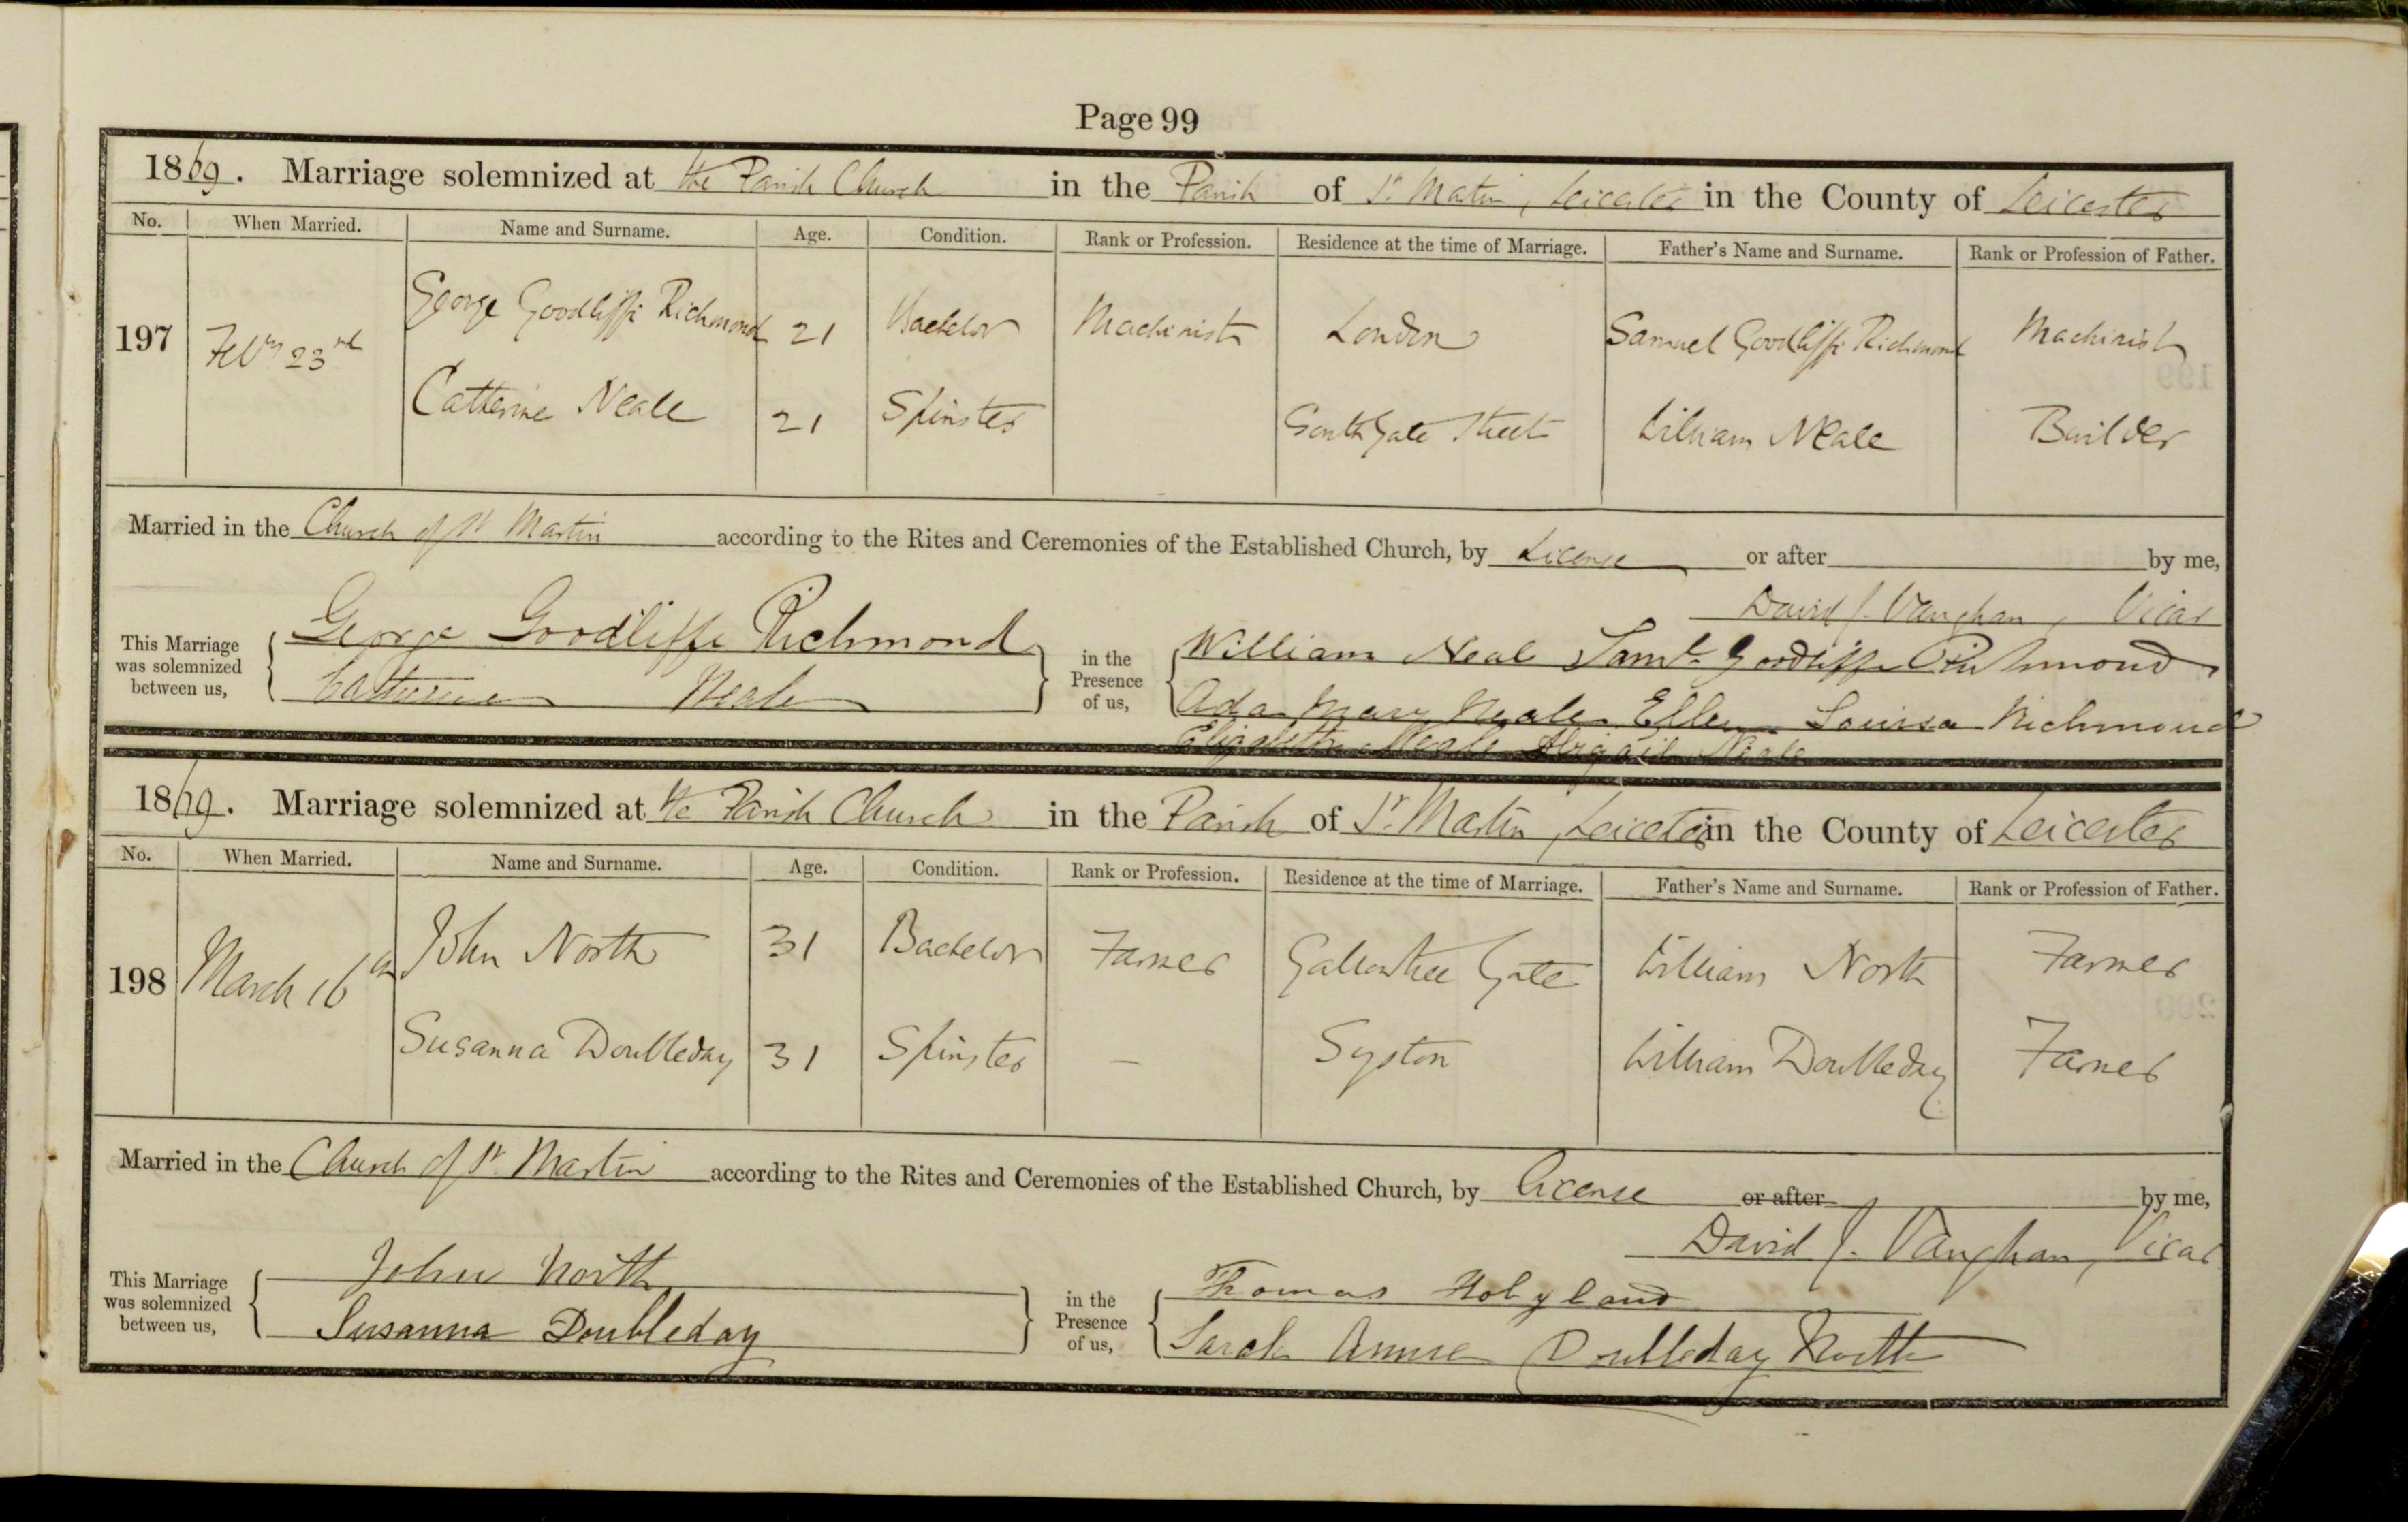 Page 99
1869. Marriage solemnized at the Parish Church in the Parish of St Martin, Leicester in the County of Leicester
No. When Married. Name and Surname. Age. Condition. Rank or Profession. Residence at the time of Marriage. Father's Name and Surname. Rank or Profession of Father.
197 Feby 23rd George Goodliffe Richmond 21 Bachelor Machinist London Samuel Goodliffe Richmond Machinist
Catherine Neale 21 Spinster SouthGate Street William Neale Builder
Married in the Church of St Martin according to the Rites and Ceremonies of the Established Church, by License or after by me,
David J. Vaughan, Vicar
This Marriage was solemnized between us, George Goodliffe Richmond in the Presence of us, William Neal Saml Goodliffe Richmond
Catherine Neale Ada Mary Neale Ellen Louisa Richmond
Elizabeth Neale Abigail Neale
1869. Marriage solemnized at the Parish Church in the Parish of St Martin, Leicester in the County of Leicester
No. When Married. Name and Surname. Age. Condition. Rank or Profession. Residence at the time of Marriage. Father's Name and Surname. Rank or Profession of Father.
198 March 16th John North 31 Bachelor Farmer Gallowtree Gate William North Farmer
Susanna Doubleday 31 Spinster — Syston William Doubleday Farmer
Married in the Church of St Martin according to the Rites and Ceremonies of the Established Church, by License or after by me,
David J. Vaughan, Vicar
This Marriage was solemnized between us, John North in the Presence of us, Thomas Holyland
Susanna Doubleday Sarah Annie Doubleday North